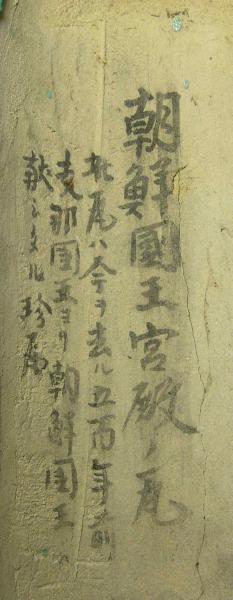 朝鮮國王宮殿ノ瓦
此瓦ハ今ヲ去ル五百年前
支那国王ヨリ朝鮮国王ヘ
献シタル珍瓦